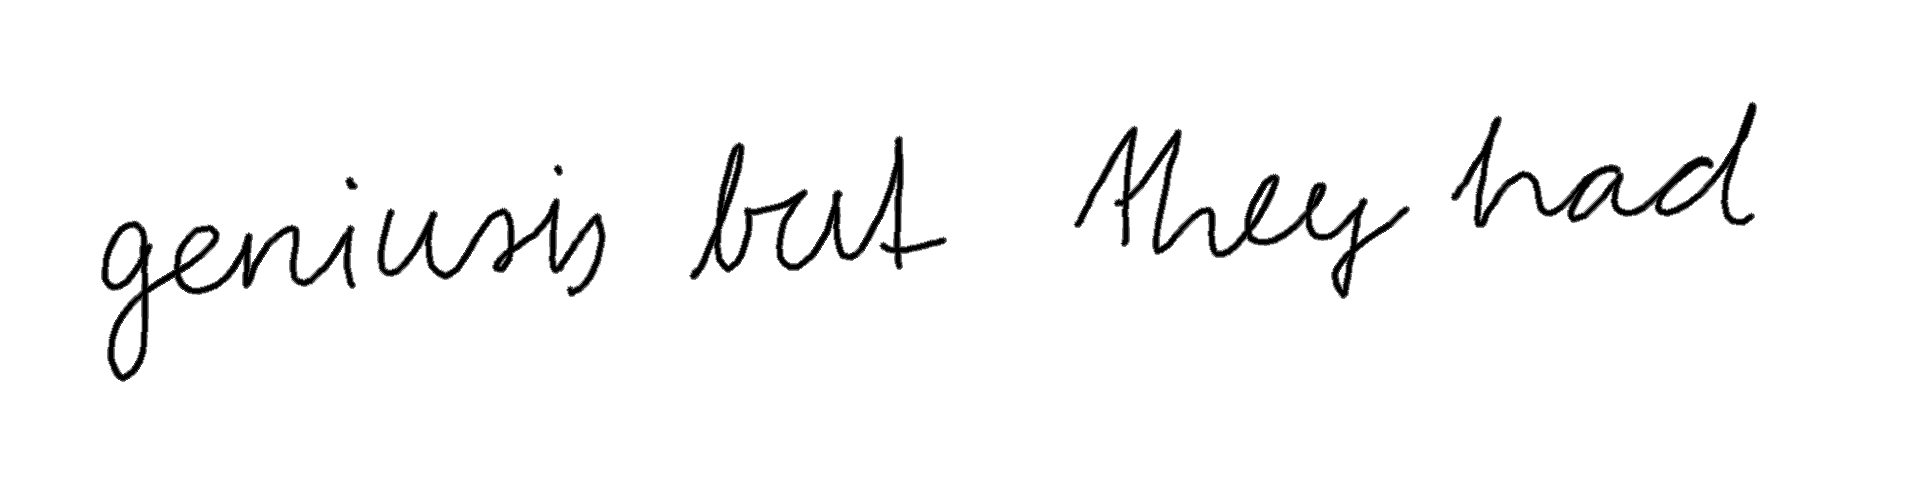 geniusis but they had